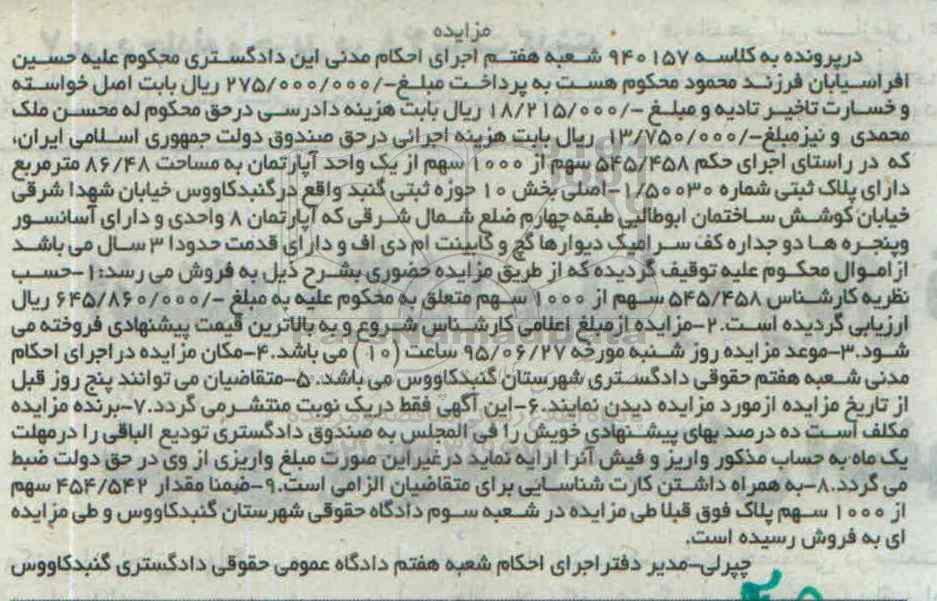 مزایده
درپرونده به کلاسه ۹۴۰۱۵۷ شعبه هفتم اجرای احکام مدنی این دادگستری محکوم علیه حسین
افراسیابان فرزند محمود محکوم هست به پرداخت مبلغ-/۲۷۵/۰۰۰/۰۰۰ ریال بابت اصل خواسته
و خسارت تاخیر تادیه و مبلغ -/۱۸/۲۱۵/۰۰۰ ریال بابت هزینه دادرسی درحق محکوم له محسن ملک
محمدی و نیزمبلغ-/۱۳/۷۵۰/۰۰۰ ریال بابت هزینه اجرائی درحق صندوق دولت جمهوری اسلامی ایران،
که در راستای اجرای حکم ۵۴۵/۴۵۸ سهم از ۱۰۰۰ سهم از یک واحد آپارتمان به مساحت ۸۶/۴۸ مترمربع
دارای پلاک ثبتی شماره ۱/۵۰۰۳۰-اصلی بخش ۱۰ حوزه ثبتی گنبد واقع درگنبدکاووس خیابان شهدا شرقی
خیابان کوشش ساختمان ابوطالبی طبقه چهارم ضلع شمال شرقی که آپارتمان ۸ واحدی و دارای آسانسور
وپنجره ها دو جداره کف سرامیک دیوارها گچ و کابینت ام دی اف و دارای قدمت حدودا ۳ سال می باشد
ازاموال محکوم علیه توقیف گردیده که از طریق مزایده حضوری بشرح ذیل به فروش می رسد:۱-حسب
نظریه کارشناس ۵۴۵/۴۵۸ سهم از ۱۰۰۰ سهم متعلق به محکوم علیه به مبلغ -/۶۴۵/۸۶۰/۰۰۰ ریال
ارزیابی گردیده است.۲-مزایده ازمبلغ اعلامی کارشناس شروع و به بالاترین قیمت پیشنهادی فروخته می
شود.۳-موعد مزایده روز شنبه مورخه ۹۵/۰۶/۲۷ ساعت (۱۰) می باشد.۴-مکان مزایده در اجرای احکام
مدنی شعبه هفتم حقوقی دادگستری شهرستان گنبدکاووس می باشد.۵-متقاضیان می توانند پنج روز قبل
از تاریخ مزایده ازمورد مزایده دیدن نمایند.۶-این آگهی فقط دریک نوبت منتشرمی گردد.۷-برنده مزایده
مکلف است ده درصد بهای پیشنهادی خویش را فی المجلس به صندوق دادگستری تودیع الباقی را درمهلت
یک ماه به حساب مذکور واریز و فیش آنرا ارایه نماید درغیراین صورت مبلغ واریزی از وی در حق دولت ضبط
می گردد.۸-به همراه داشتن کارت شناسایی برای متقاضیان الزامی است.۹-ضمنا مقدار ۴۵۴/۵۴۲ سهم
از ۱۰۰۰ سهم پلاک فوق قبلا طی مزایده در شعبه سوم دادگاه حقوقی شهرستان گنبدکاووس و طی مزایده
ای به فروش رسیده است.
چپرلی-مدیر دفتراجرای احکام شعبه هفتم دادگاه عمومی حقوقی دادگستری گنبدکاووس